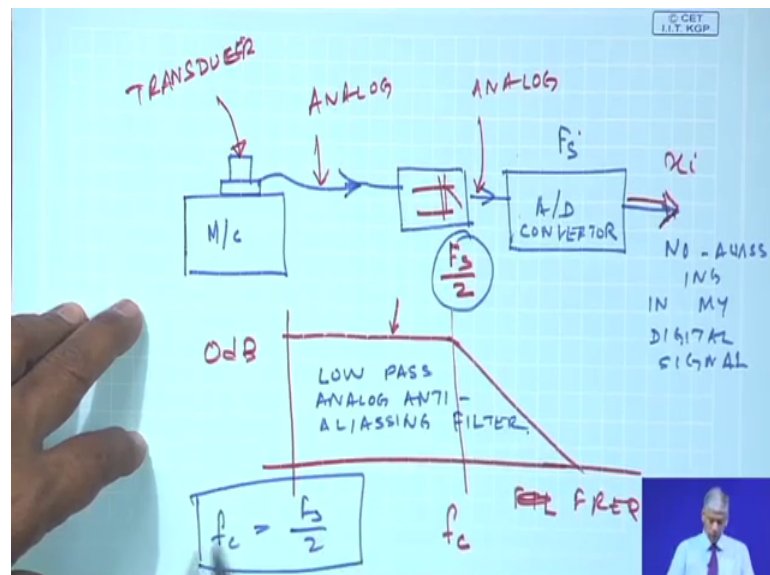 © CET
I.I.T. KGP
TRANSDUER
ANALOG
ANALOG
Fs
xi
M/C
A/D
CONVERTOR
Fs
2
NO-ALIASS
ING
IN MY
DIGITAL
SIGNAL
0dB
LOW PASS
ANALOG ANTI-
ALIASSING FILTER
FREQ
fc = Fs
2
fc